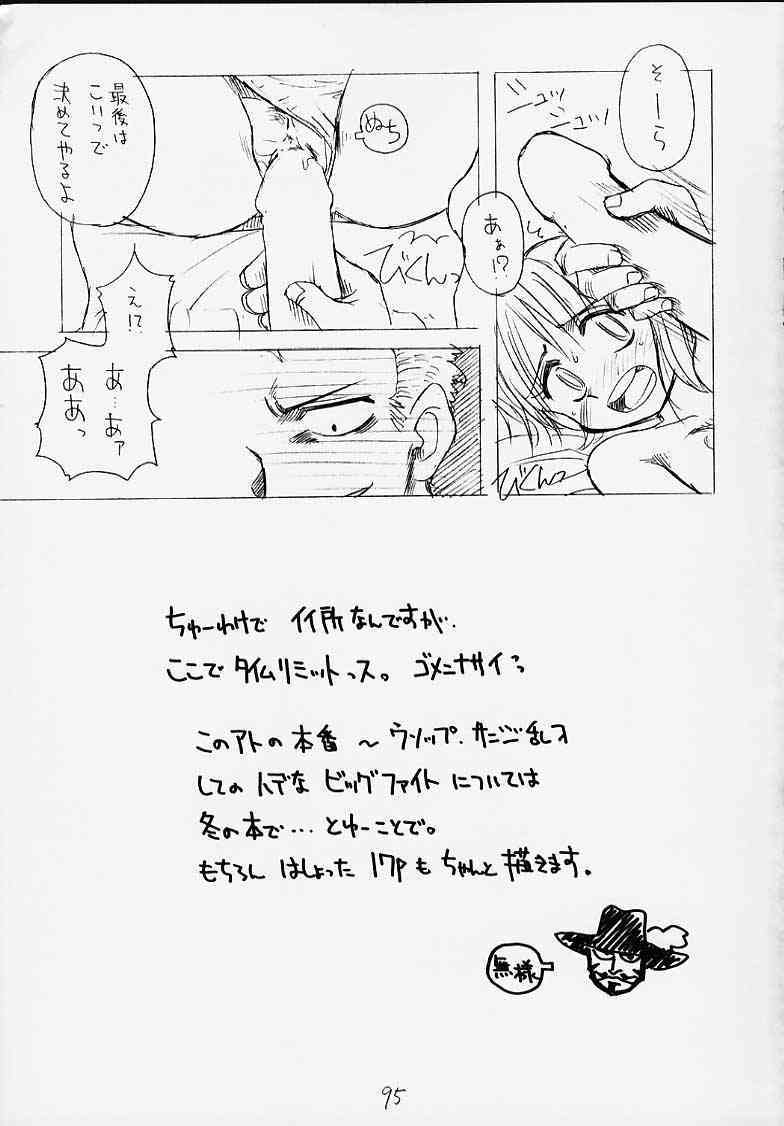 そーら
ニュッ
ニュッ
あぁ!?
びくんっ
ぬち
びくんっ
最後は
こいつで
決めてやるよ
え!?
あ…あァ
ああっ
ちゅーわけで イイ所なんですが、
ここで タイムリミットっス。 ゴメンナサイっ
このアトの本番 〜 ウソップ、サンジ乱入
しての ハデな ビッグファイト については
冬の本で… とゆーことで。
もちろん はしょった 17Pも ちゃんと 描きます。
無様
95